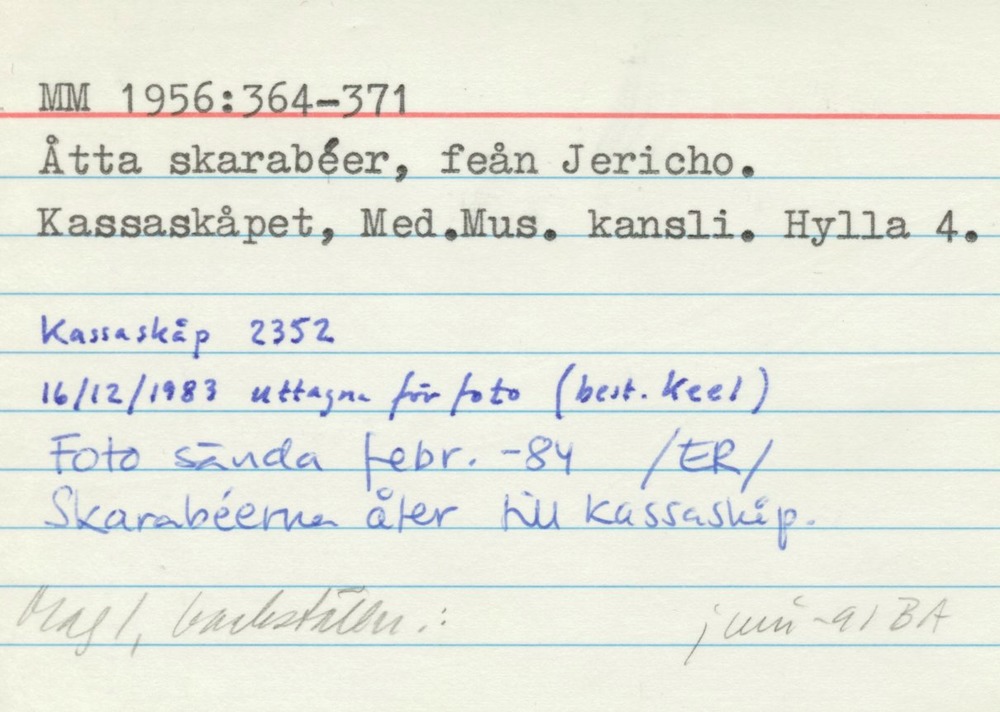 MM 1956:364-371
Åtta skarabéer, feån Jericho.
Kassaskåpet, Med.Mus. kansli. Hylla 4.
Kassaskåp 2352
16/12/1983 uttagna för foto (best. Keel)
Foto sända febr. -84 /ER/
Skarabéerna åter till kassaskåp.
Mag 1, juni -91 BA